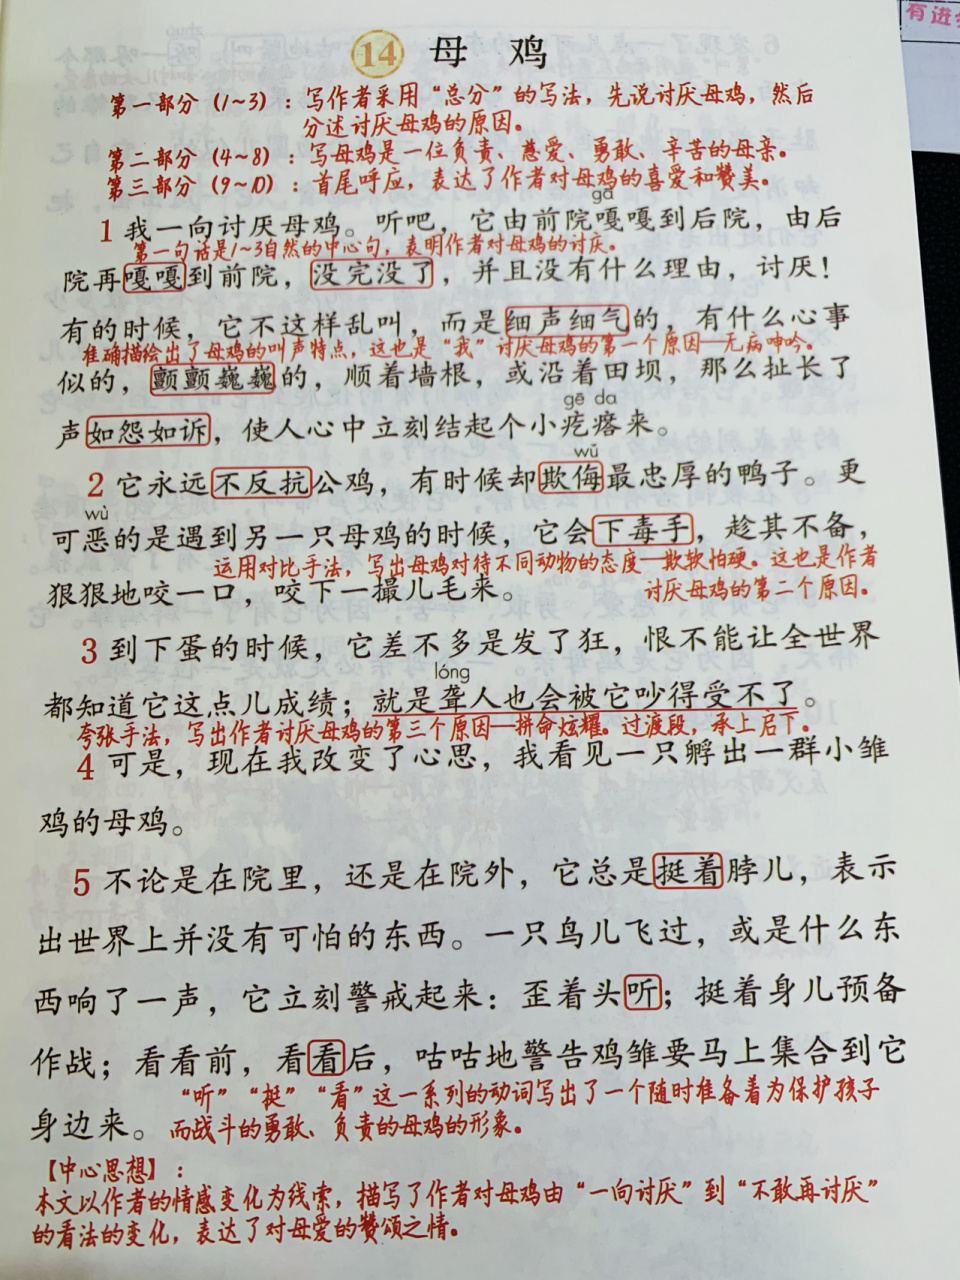 有进
14 母 鸡
第一部分（1～3）：写作者采用“总分”的写法，先说讨厌母鸡，然后
分述讨厌母鸡的原因。
第二部分（4～8）：写母鸡是一位负责、慈爱、勇敢、辛苦的母亲。
第三部分（9～10）：首尾呼应，表达了作者对母鸡的喜爱和赞美。
gā
1 我一向讨厌母鸡。听吧，它由前院嘎嘎到后院，由后
第一句话是1～3自然的中心句，表明作者对母鸡的讨厌。
院再嘎嘎到前院，没完没了，并且没有什么理由，讨厌！
有的时候，它不这样乱叫，而是细声细气的，有什么心事
准确描绘出了母鸡的叫声特点，这也是“我”讨厌母鸡的第一个原因—无病呻吟。
似的，颤颤巍巍的，顺着墙根，或沿着田坝，那么扯长了
gē da
声如怨如诉，使人心中立刻结起个小疙瘩来。
wǔ
2 它永远不反抗公鸡，有时候却欺侮最忠厚的鸭子。更
wù
可恶的是遇到另一只母鸡的时候，它会下毒手，趁其不备，
运用对比手法，写出母鸡对待不同动物的态度—欺软怕硬。这也是作者
狠狠地咬一口，咬下一撮儿毛来。
讨厌母鸡的第二个原因。
3 到下蛋的时候，它差不多是发了狂，恨不能让全世界
lóng
都知道它这点儿成绩；就是聋人也会被它吵得受不了。
夸张手法，写出作者讨厌母鸡的第三个原因—拼命炫耀。过渡段，承上启下。
4 可是，现在我改变了心思，我看见一只孵出一群小雏
鸡的母鸡。
5 不论是在院里，还是在院外，它总是挺着脖儿，表示
出世界上并没有可怕的东西。一只鸟儿飞过，或是什么东
西响了一声，它立刻警戒起来：歪着头听；挺着身儿预备
作战；看看前，看看后，咕咕地警告鸡雏要马上集合到它
“听”“挺”“看”这一系列的动词写出了一个随时准备着为保护孩子
身边来。
而战斗的勇敢、负责的母鸡的形象。
【中心思想】：
本文以作者的情感变化为线索，描写了作者对母鸡由“一向讨厌”到“不敢再讨厌”
的看法的变化，表达了对母爱的赞颂之情。